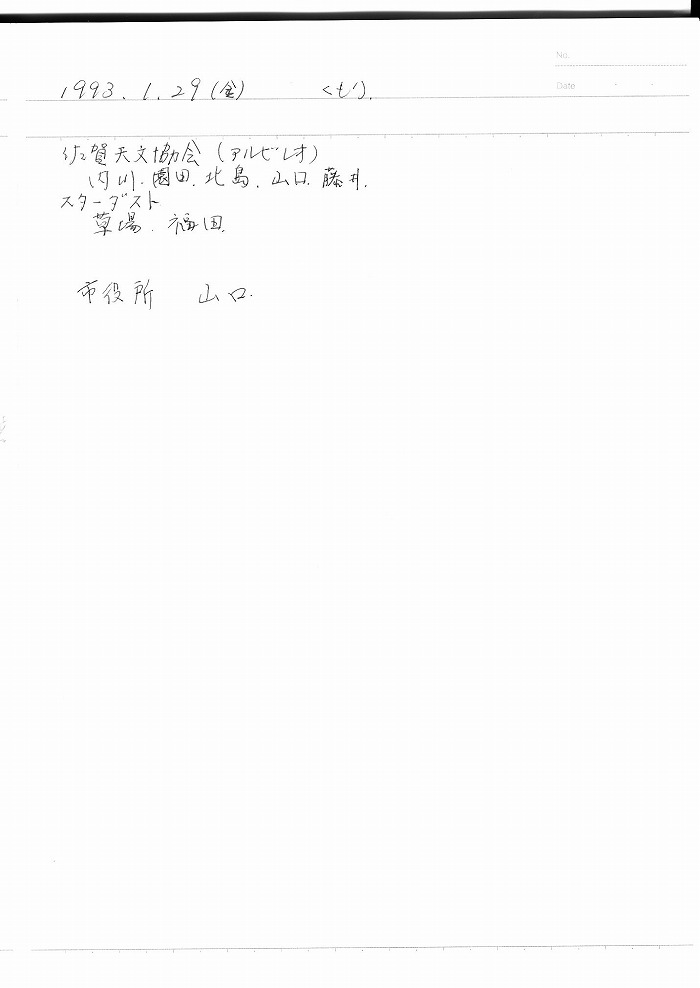 No.
Date
1993.1.29(金) くもり.
佐賀天文協会(アルビレオ)
内川.園田.北島.山口.藤井.
スターダスト
草場.福田.
市役所 山口.